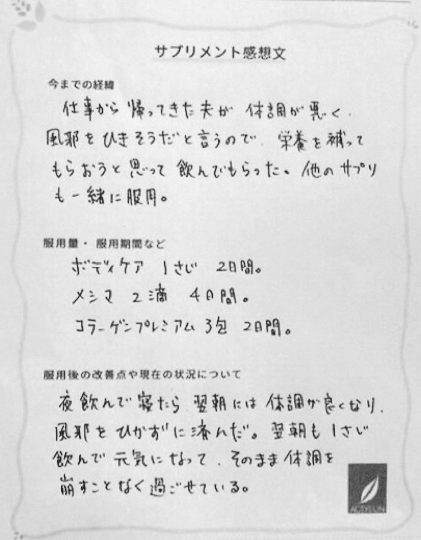 サプリメント感想文
今までの経緯
仕事から帰ってきた夫が体調が悪く、
風邪をひきそうだと言うので、栄養を補って
もらおうと思って飲んでもらった。他のサプリ
も一緒に服用。
服用量・服用期間など
ボディケア 1さじ 2日間。
メシマ 2滴 4日間。
コラーゲンプレミアム 3包 2日間。
服用後の改善点や現在の状況について
夜飲んで寝たら翌朝には体調が良くなり、
風邪をひかずに済んだ。翌朝も1さじ
飲んで元気になって、そのまま体調を
崩すことなく過ごせている。